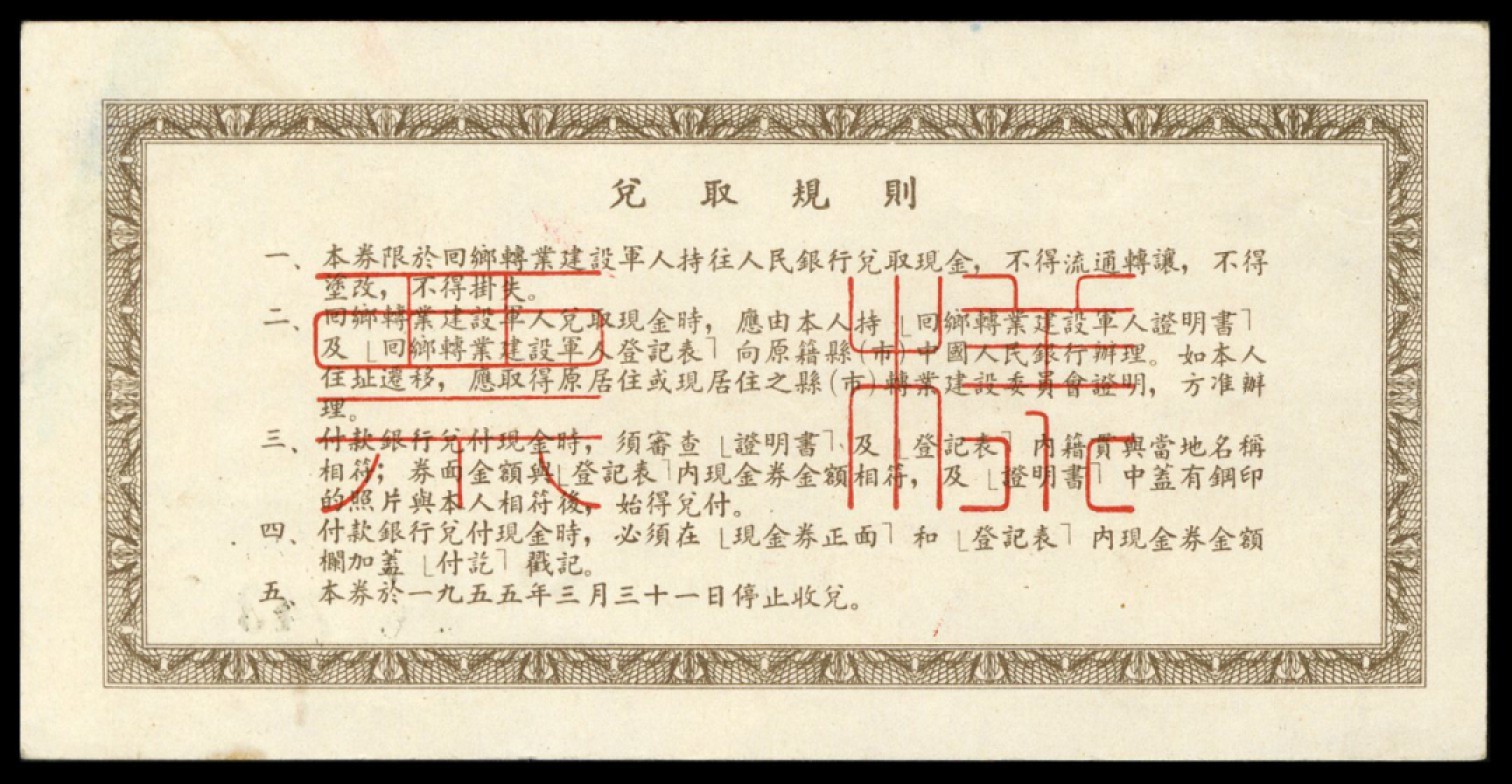 兌取規則
一、本券限於回鄉轉業建設軍人持往人民銀行兌取現金，不得流通轉讓，不得
塗改，不得掛失。
二、回鄉轉業建設軍人兌取現金時，應由本人持「回鄉轉業建設軍人證明書」
及「回鄉轉業建設軍人登記表」向原籍縣(市)中國人民銀行辦理。如本人
住址遷移，應取得原居住或現居住之縣(市)轉業建設委員會證明，方准辦
理。
三、付款銀行兌付現金時，須審查「證明書」及「登記表」內籍貫與當地名稱
相符；券面金額與「登記表」內現金券金額相符，及「證明書」中蓋有鋼印
的照片與本人相符後，始得兌付。
四、付款銀行兌付現金時，必須在「現金券正面」和「登記表」內現金券金額
欄加蓋「付訖」戳記。
五、本券於一九五五年三月三十一日停止收兌。